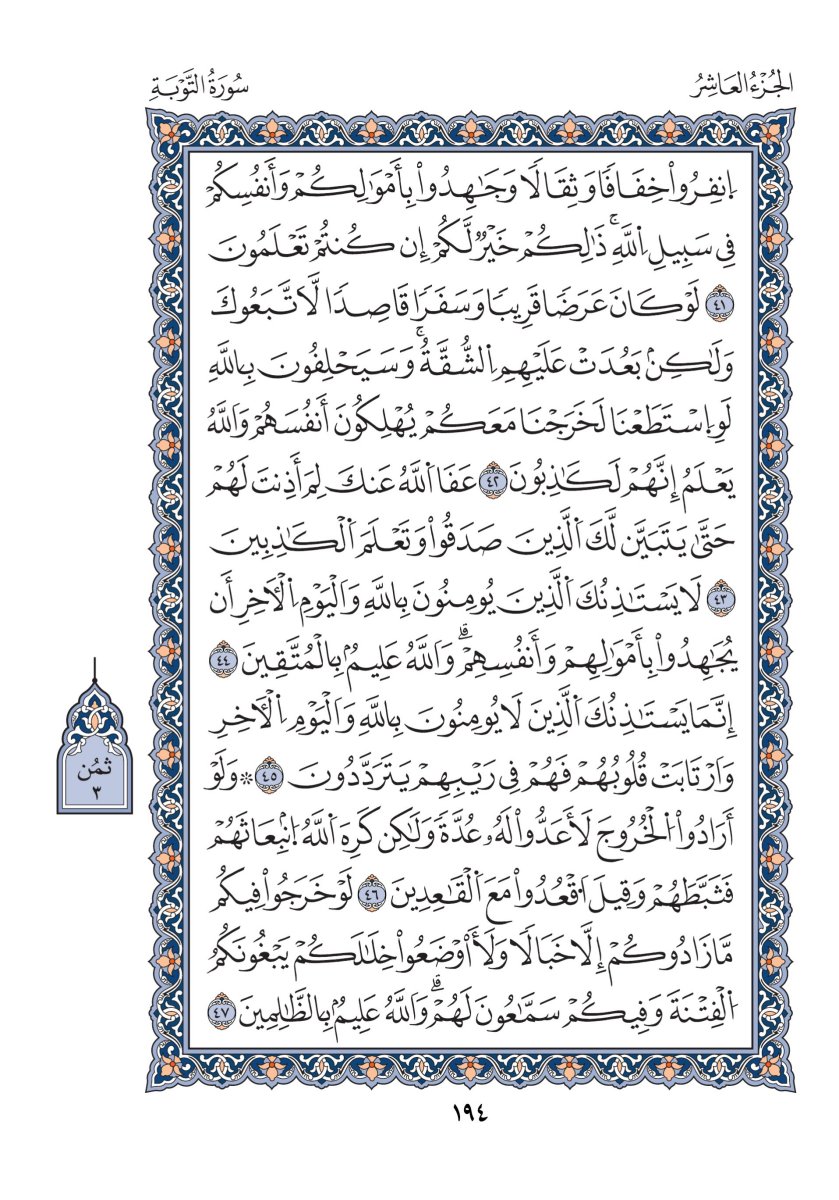 الجُزْءُ العَاشِرُ
سُورَةُ التَّوْبَةِ
اِ۪نفِرُواْ خِفَافٗا وَثِقَالٗا وَجَٰهِدُواْ بِأَمْوَٰلِكُمْ وَأَنفُسِكُمْ
فِے سَبِيلِ اِ۬للَّهِۚ ذَٰلِكُمْ خَيْرٞ لَّكُمْ إِن كُنتُمْ تَعْلَمُونَ
٤١ لَوْ كَانَ عَرَضٗا قَرِيبٗا وَسَفَرٗا قَاصِدٗا لَّاتَّبَعُوكَ
وَلَٰكِنۢ بَعُدَتْ عَلَيْهِمِ اِ۬لشُّقَّةُۚ وَسَيَحْلِفُونَ بِاللَّهِ
لَوِ اِ۪سْتَطَعْنَا لَخَرَجْنَا مَعَكُمْ يُهْلِكُونَ أَنفُسَهُمْ وَاللَّهُ
يَعْلَمُ إِنَّهُمْ لَكَٰذِبُونَ ٤٢ عَفَا اَ۬للَّهُ عَنكَ لِمَ أَذِنتَ لَهُمْ
حَتَّىٰ يَتَبَيَّنَ لَكَ اَ۬لذِينَ صَدَقُواْ وَتَعْلَمَ اَ۬لْكَٰذِبِينَ
٤٣ لَا يَسْتَٰذِنُكَ اَ۬لذِينَ يُومِنُونَ بِاللَّهِ وَالْيَوْمِ اِ۬لْأٓخِرِ أَن
يُجَٰهِدُواْ بِأَمْوَٰلِهِمْ وَأَنفُسِهِمْۗ وَاللَّهُ عَلِيمُۢ بِالْمُتَّقِينَ ٤٤
إِنَّمَا يَسْتَٰذِنُكَ اَ۬لذِينَ لَا يُومِنُونَ بِاللَّهِ وَالْيَوْمِ اِ۬لْأٓخِرِ
وَارْتَابَتْ قُلُوبُهُمْ فَهُمْ فِے رَيْبِهِمْ يَتَرَدَّدُونَ ٤٥ ۞ وَلَوْ
أَرَادُواْ اُ۬لْخُرُوجَ لَأَعَدُّواْ لَهُۥ عُدَّةٗ وَلَٰكِن كَرِهَ اَ۬للَّهُ اُ۪نۢبِعَاثَهُمْ
فَثَبَّطَهُمْ وَقِيلَ اَ۟قْعُدُواْ مَعَ اَ۬لْقَٰعِدِينَ ٤٦ لَوْ خَرَجُواْ فِيكُم
مَّا زَادُوكُمْ إِلَّا خَبَالٗا وَلَأَاْوْضَعُواْ خِلَٰلَكُمْ يَبْغُونَكُمُ
اُ۬لْفِتْنَةَ وَفِيكُمْ سَمَّٰعُونَ لَهُمْۗ وَاللَّهُ عَلِيمُۢ بِالظَّٰلِمِينَ ٤٧
ثمُن
٣
١٩٤